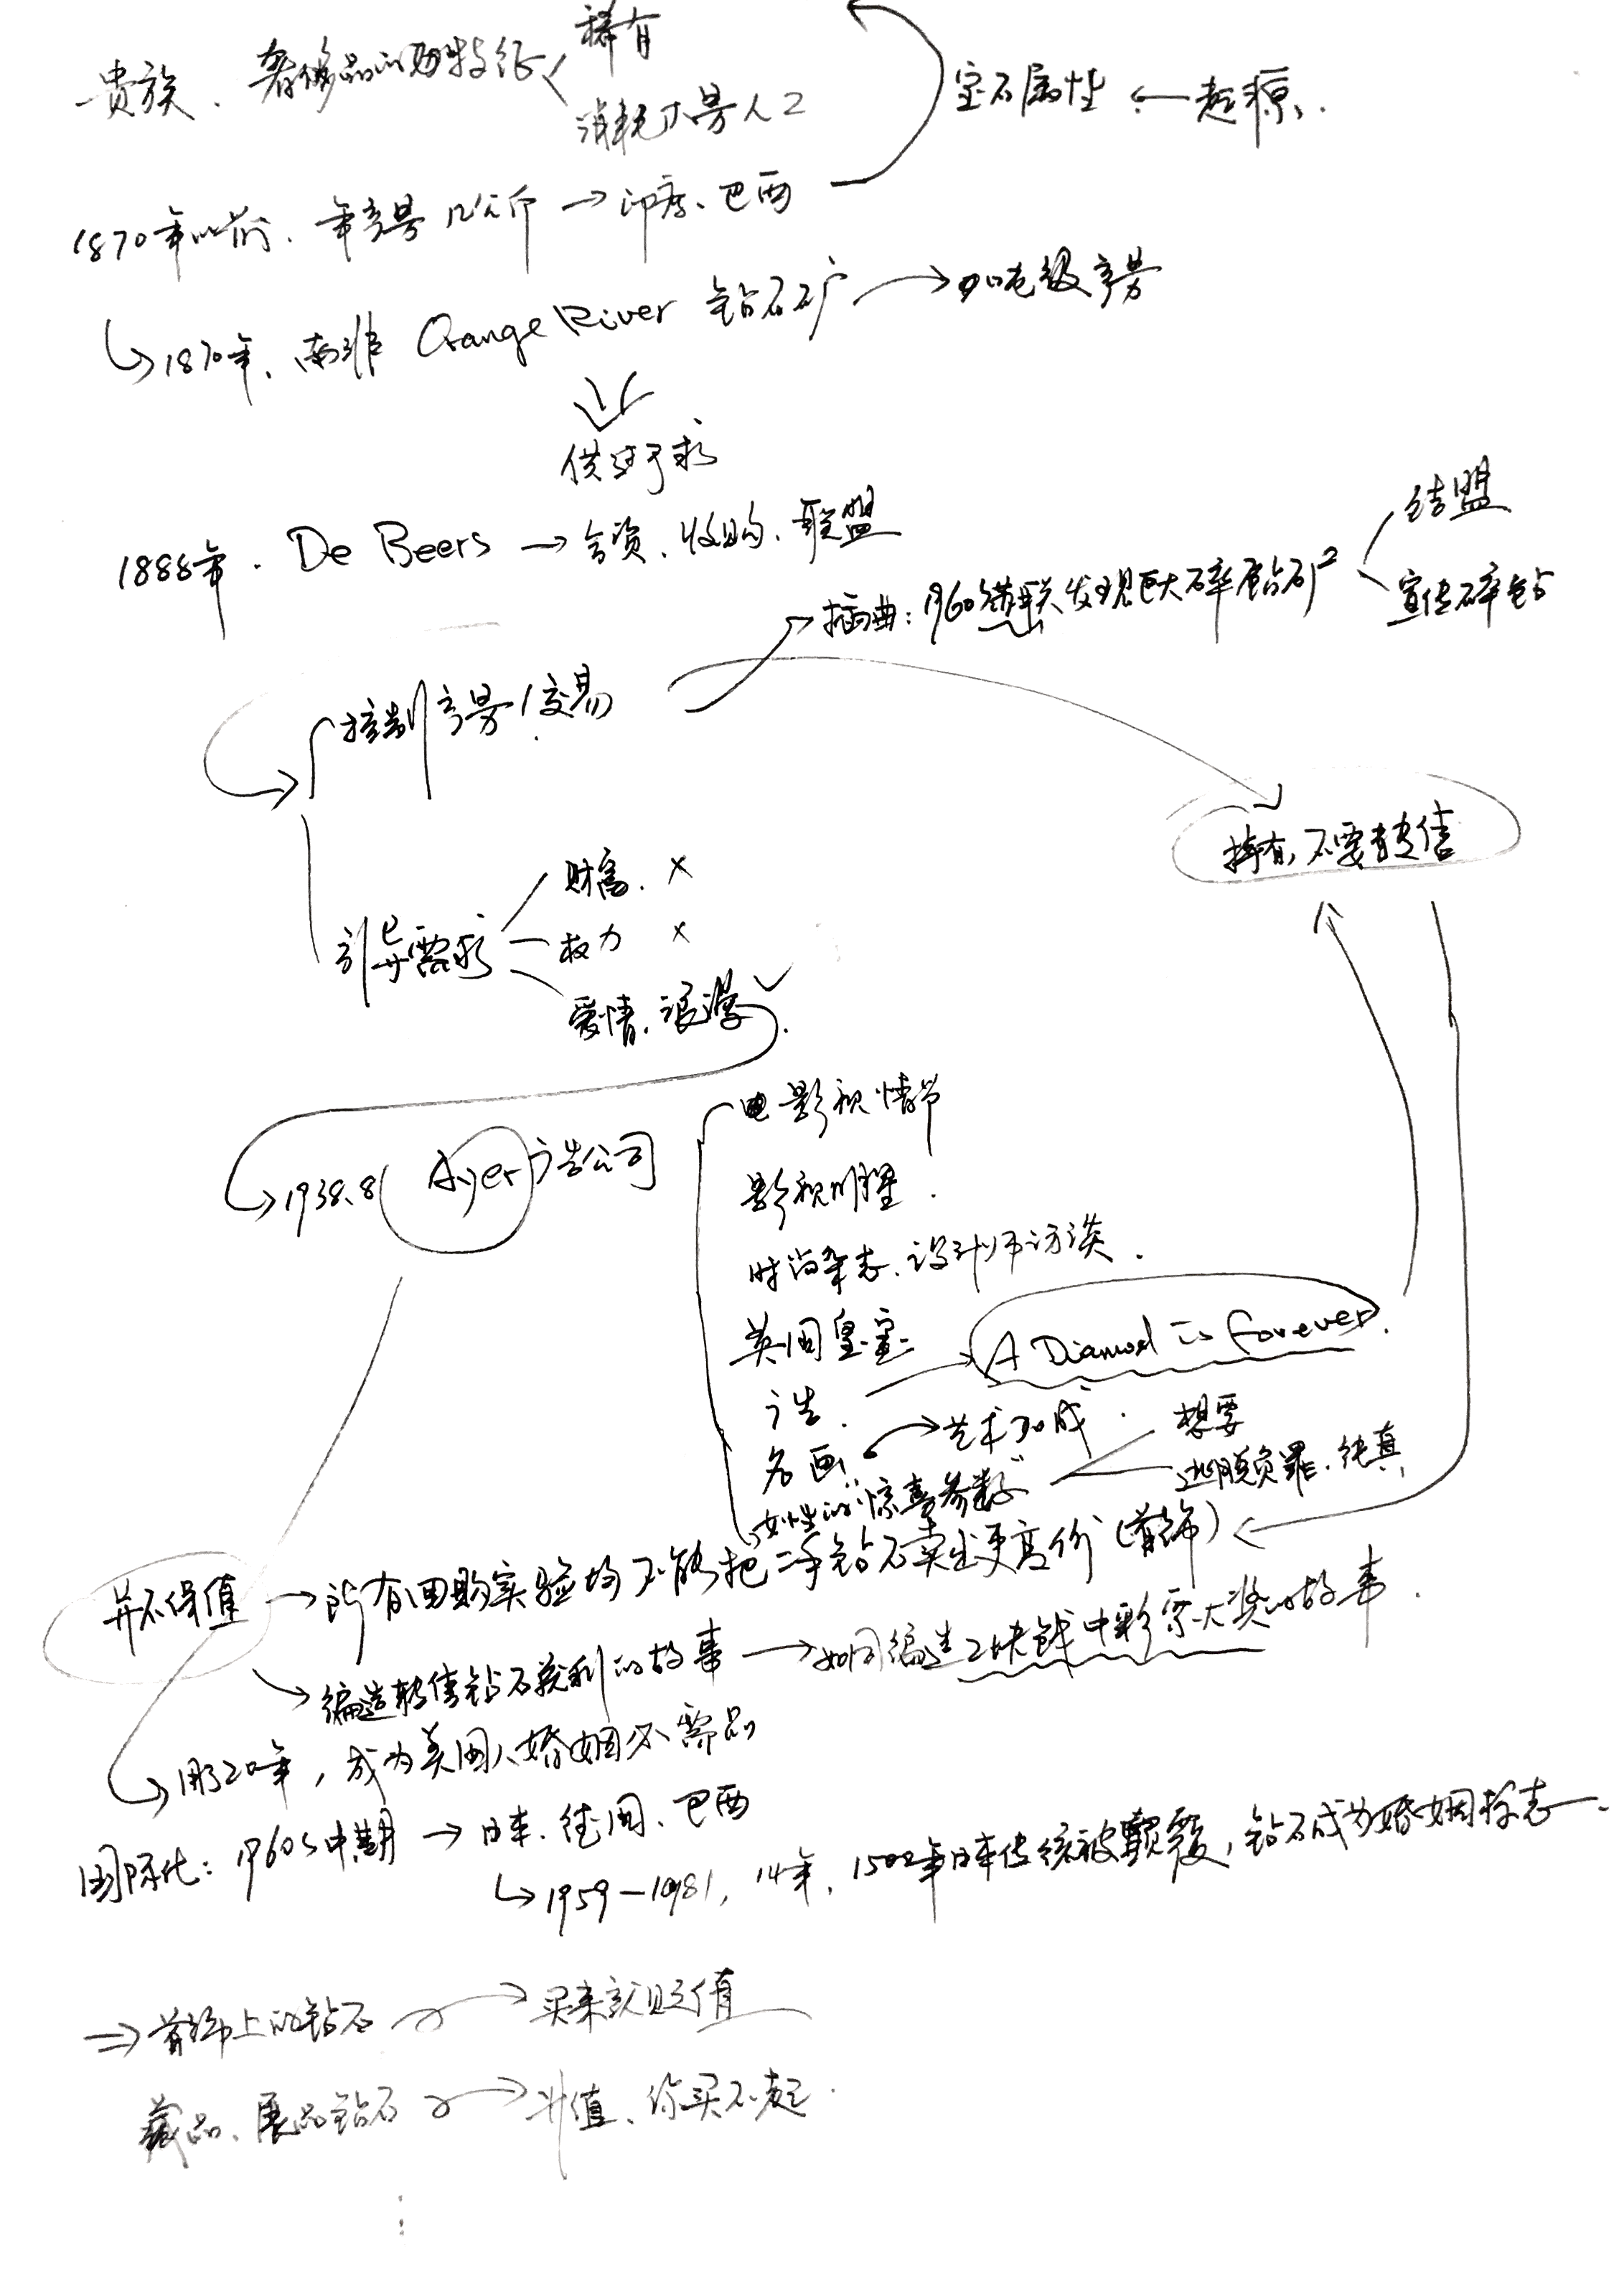 稀有
贵族、奢侈品的特征
消耗大量人工
宝石属性 ← 起源.
1870年以前、年产量几公斤 → 印度、巴西
1870年、南非 Orange River 钻石矿 → 以吨级产量
供过于求
1888年. De Beers → 合资、收购、联盟
结盟
插曲: 1960 苏联发现巨大碎钻矿
宣传碎钻
控制产量/交易
持有,不要转售
财富. ×
引导需求 权力 ×
爱情.浪漫 ✓
电影视情节
1938.8 Ayer 广告公司
影视明星.
时尚杂志、设计师访谈.
英国皇室
广告. → A Diamond is Forever.
名画 → 艺术
想要
女性的"惊喜参数" 逃脱负罪.纯真
并不保值 → 所有回购实验均不能把二手钻石卖出更高价(首饰)
编造转售钻石获利的故事 → 如同编造2块钱中彩票大奖的故事.
用了20年, 成为美国人婚姻必需品
国际化: 1960s中期 → 日本、德国、巴西
1959-1981, 14年, 1500年日本传统被颠覆,钻石成为婚姻标志.
⇒ 首饰上的钻石 → 买来就贬值
藏品、展品钻石 → 升值、你买不起.